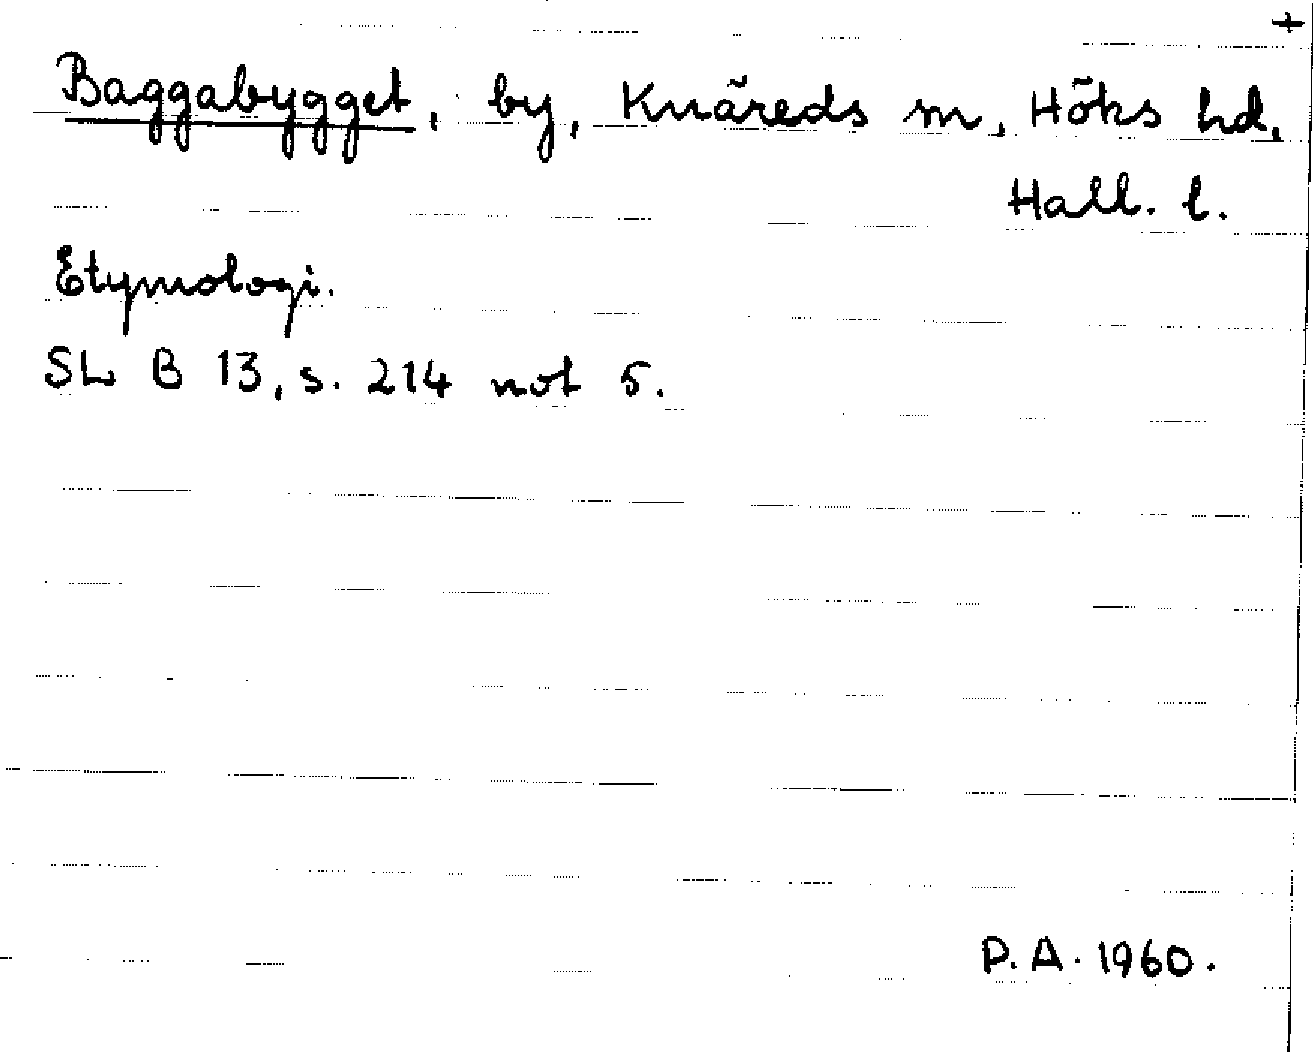 +
Baggabygget, by, Knäreds sn, Höks hd,
Hall. l.
Etymologi.
SL B 13, s. 214 not 5.
P. A. 1960.